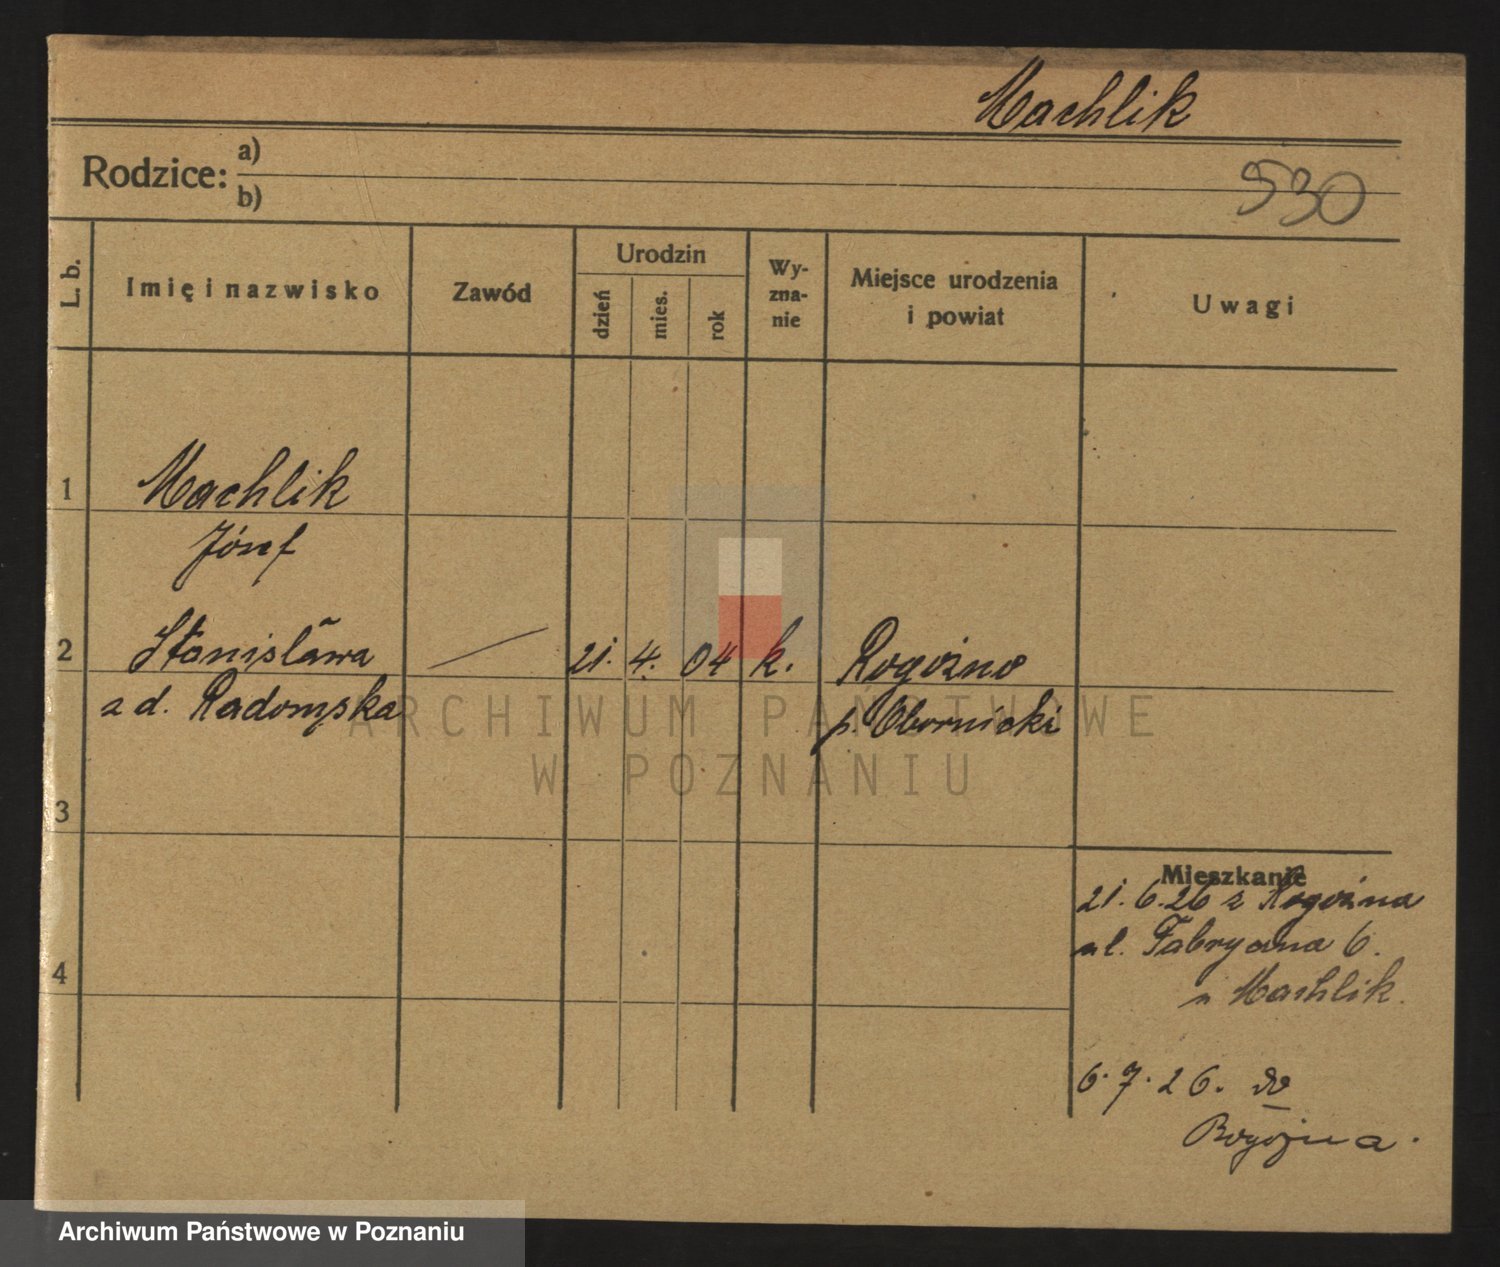 Machlik
Rodzice: a)
b)
530
L. b.
Imię i nazwisko
Zawód
Urodzin
dzień
mies.
rok
Wy-
zna-
nie
Miejsce urodzenia
i powiat
Uwagi
1
Machlik
Józef
2
Stanisława
z d. Radomska
21. 4. 04 k.
Rogoźno
p. Obornicki
3
4
Mieszkanie
21. 6. 26 z Rogoźna
ul. Fabryczna 6.
u Machlik.
6. 7. 26. do
Rogoźna.
ARCHIWUM PAŃSTWOWE
W POZNANIU
Archiwum Państwowe w Poznaniu